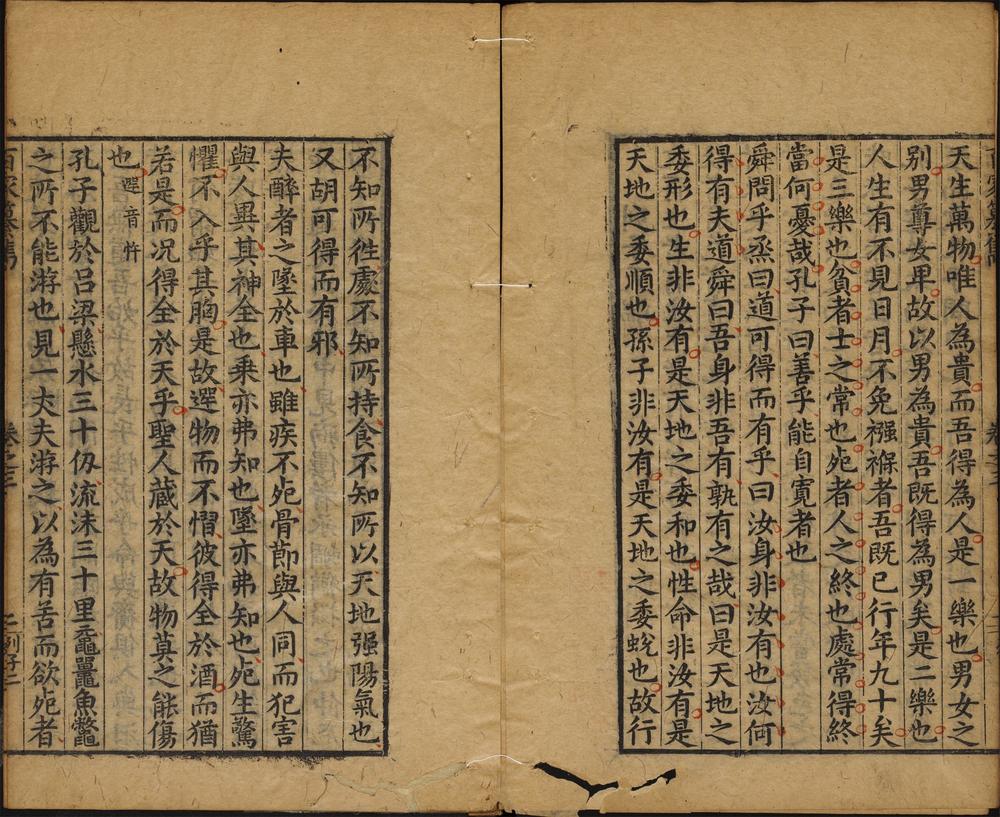 天生萬物唯人為貴而吾得為人是一樂也男女之
別男尊女卑故以男為貴吾既得為男矣是二樂也
人生有不見日月不免襁褓者吾既已行年九十矣
是三樂也貧者士之常也死者人之終也處常得終
當何憂哉孔子曰善乎能自寬者也
舜問乎烝曰道可得而有乎曰汝身非汝有也汝何
得有夫道舜曰吾身非吾有孰有之哉曰是天地之
委形也生非汝有是天地之委和也性命非汝有是
天地之委順也孫子非汝有是天地之委蛻也故行
不知所徃處不知所持食不知所以天地强陽氣也
又胡可得而有邪
夫醉者之墜於車也雖疾不死骨節與人同而犯害
與人異其神全也乘亦弗知也墜亦弗知也死生驚
懼不入乎其胸是故遻物而不慴彼得全於酒而猶
若是而况得全於天乎聖人蔵於天故物莫之能傷
也 遻音忤
孔子觀於呂梁懸水三十仭流沫三十里黿鼉魚鱉
之所不能游也見一丈夫游之以為有苦而欲死者
百家纂雋